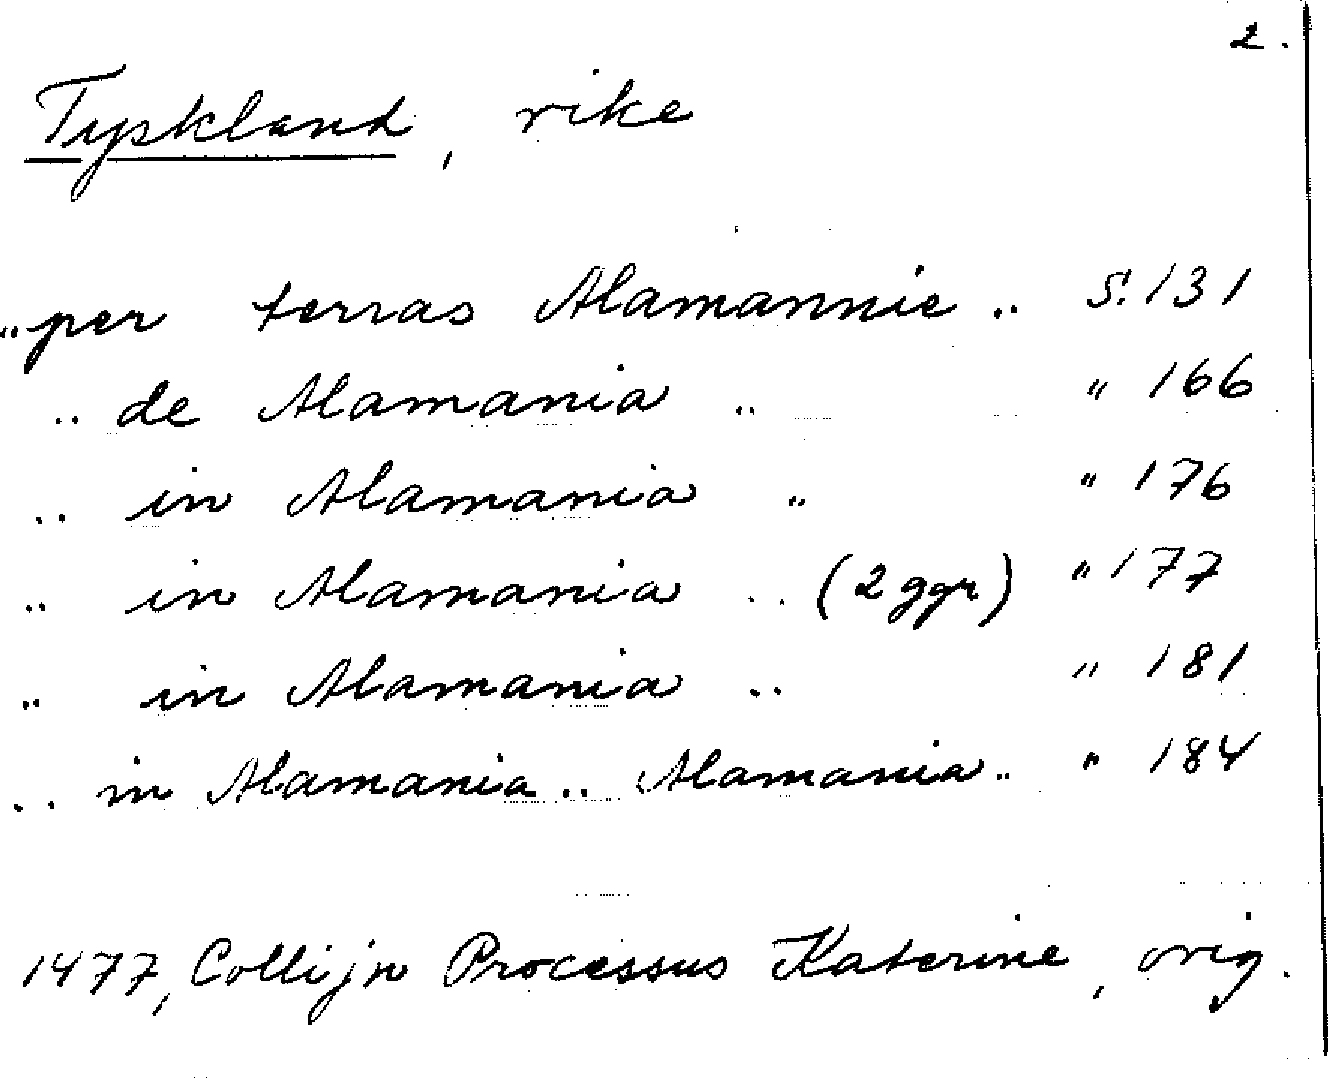 2.
Tyskland, rike
.. per terras Alamannie .. S. 131
.. de Alamania .. " 166
.. in Alamania .. " 176
.. in Alamania .. (2 ggr) " 177
.. in Alamania .. " 181
.. in Alamania .. Alamania .. " 184
1477, Collijn Processus Katerine, orig.